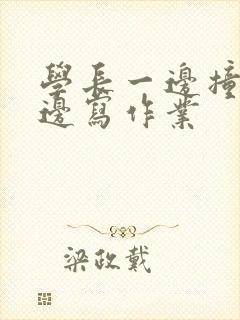 學長一邊撞
邊寫作業
梁政戴